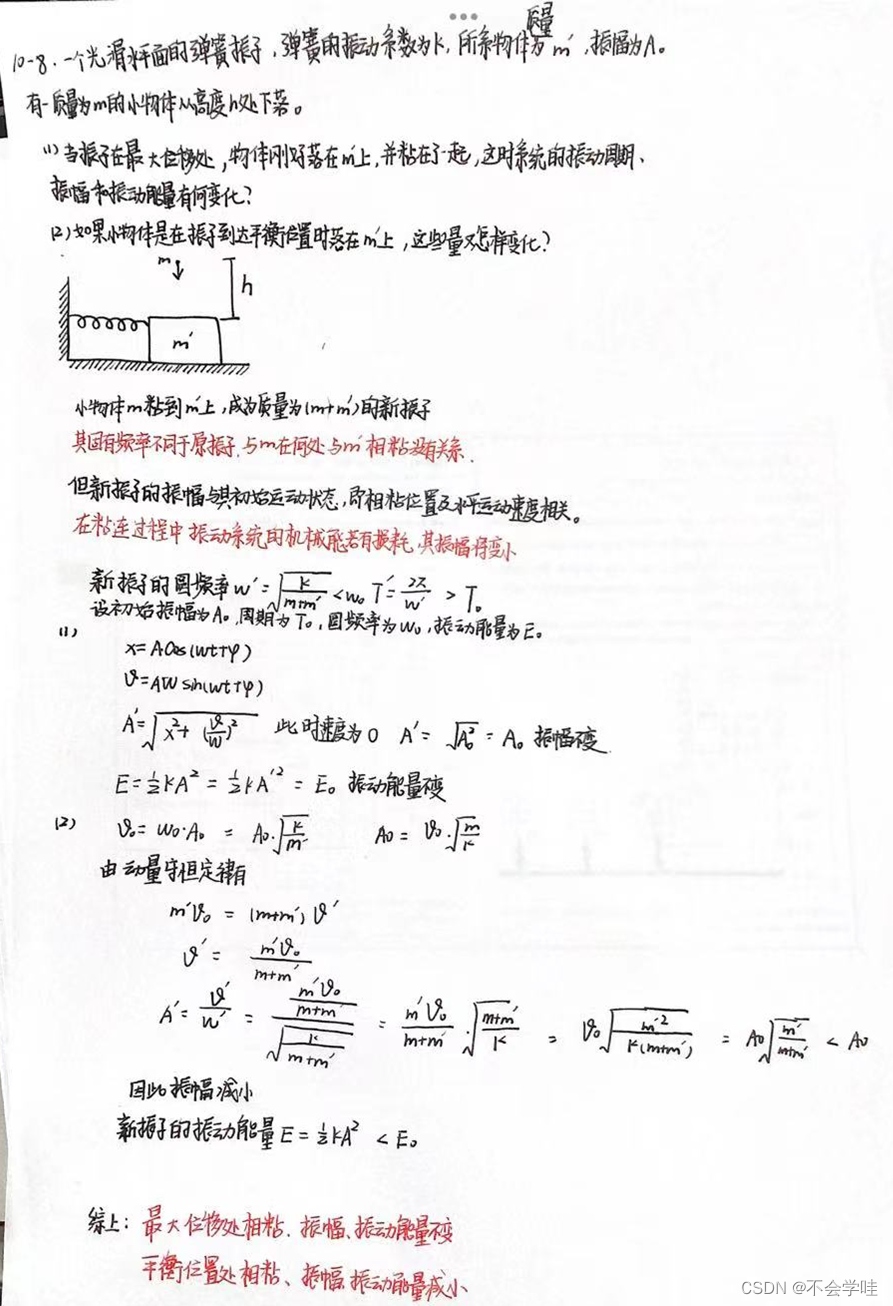 质量
10-8.一个光滑水平面的弹簧振子，弹簧的振动系数为k，所系物体为m′，振幅为A。
有一质量为m的小物体从高度h处下落。
(1)当振子在最大位移处，物体刚好落在m′上，并粘在了一起，这时系统的振动周期、
振幅和振动能量有何变化？
(2)如果小物体是在振子到达平衡位置时落在m′上，这些量又怎样变化？
m
h
m′
小物体m粘到m′上，成为质量为(m+m′)的新振子
其固有频率不同于原振子.与m在何处与m′相粘没有关系.
但新振子的振幅与其初始运动状态，即相粘位置及水平运动速度相关。
在粘连过程中振动系统的机械能若有损耗，其振幅将变小
新振子的圆频率w′=√(k/(m+m′))<w₀ T′=2π/w′ > T₀
设初始振幅为A₀，周期为T₀，圆频率为w₀，振动能量为E₀
(1)
x=Acos(wt+φ)
v=AWsin(wt+φ)
A′=√(x²+(v/w)²) 此时速度为0 A′=√(A₀²)=A₀ 振幅不变
E=½kA²=½kA′²=E₀ 振动能量不变
(2) v₀=w₀·A₀ = A₀·√(k/m′) A₀= v₀·√(m/k)
由动量守恒定律有
m′v₀ = (m+m′)v′
v′= m′v₀/(m+m′)
A′= v′/w′ = (m′v₀/(m+m′))/√(k/(m+m′)) = m′v₀/(m+m′)·√((m+m′)/k) = v₀√(m′²/(k(m+m′))) = A₀√(m′/(m+m′)) < A₀
因此振幅减小
新振子的振动能量E=½kA² < E₀
综上：最大位移处相粘.振幅、振动能量不变
平衡位置处相粘、振幅、振动能量减小
CSDN @不会学哇